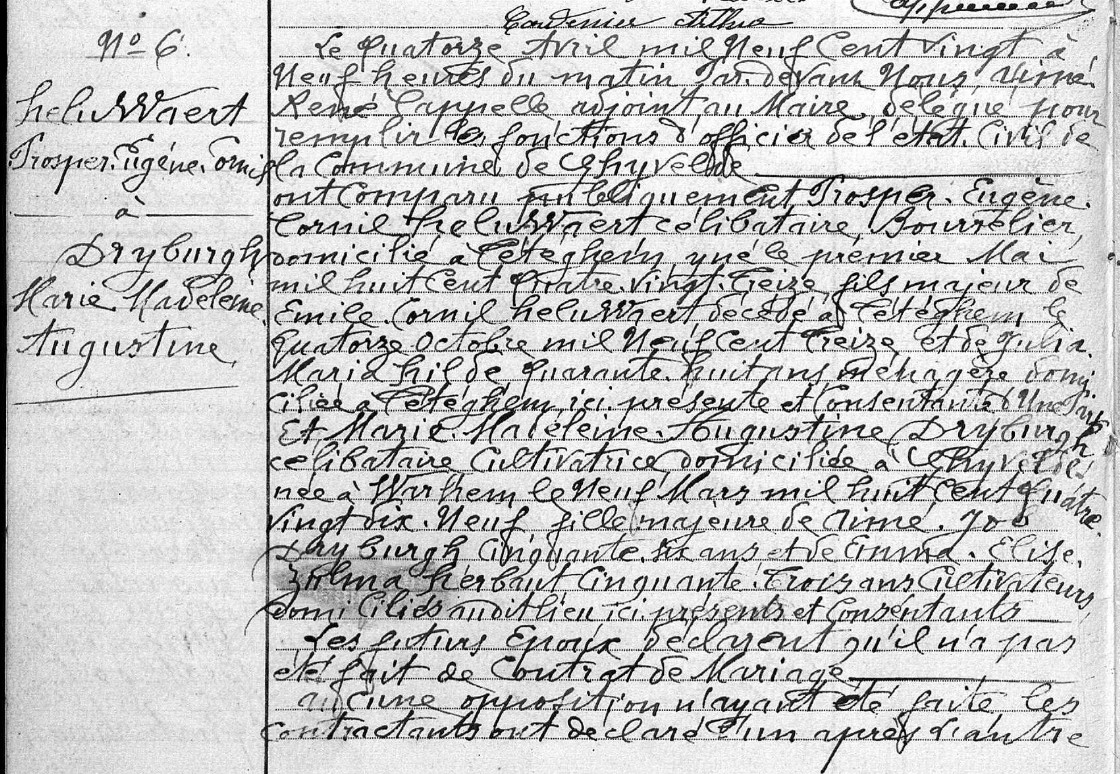 Cardenier Arthur
No 6.
heluWaert
Prosper. Eugène. Cornil
à
Dryburgh
Marie Madeleine
Augustine
Le Quatorze Avril mil Neuf Cent Vingt à
Neuf heures du matin Par. devant Nous Aimé
René Cappelle adjoint au Maire, délégué pour
remplir les fonctions d'officier de l'état. Civil de
la Commune de Ghyvelde
ont Comparu publiquement Prosper. Eugène.
Cornil heluWaert célibataire, Bourrelier,
domicilié à Téteghem, y né le premier Mai
mil huit Cent Quatre. Vingt. Treize, fils majeur de
Emile. Cornil heluWaert décédé à Téteghem le
Quatorze Octobre mil Neuf Cent Treize, Et de Julia.
Marie hilde Quarante. huit ans ménagère domi
ciliée à Téteghem ici présente et Consentante d'Une Part
Et Marie. Madeleine. Augustine Dryburgh
célibataire Cultivatrice domiciliée à Ghyvelde
née à Warhem le Neuf Mars mil huit Cent Quatre
Vingt dix. Neuf fille majeure de Aimé.
Dryburgh Cinquante. six ans et de Emma. Elise.
Zulma herbaut Cinquante. Trois ans Cultivateurs
domiciliés audit lieu ici présents et Consentants
Les futurs Epoux déclarent qu'il n'a pas
été fait de Contrat de Mariage
aucune opposition n'ayant été faite les
contractants ont déclaré l'un après l'autre